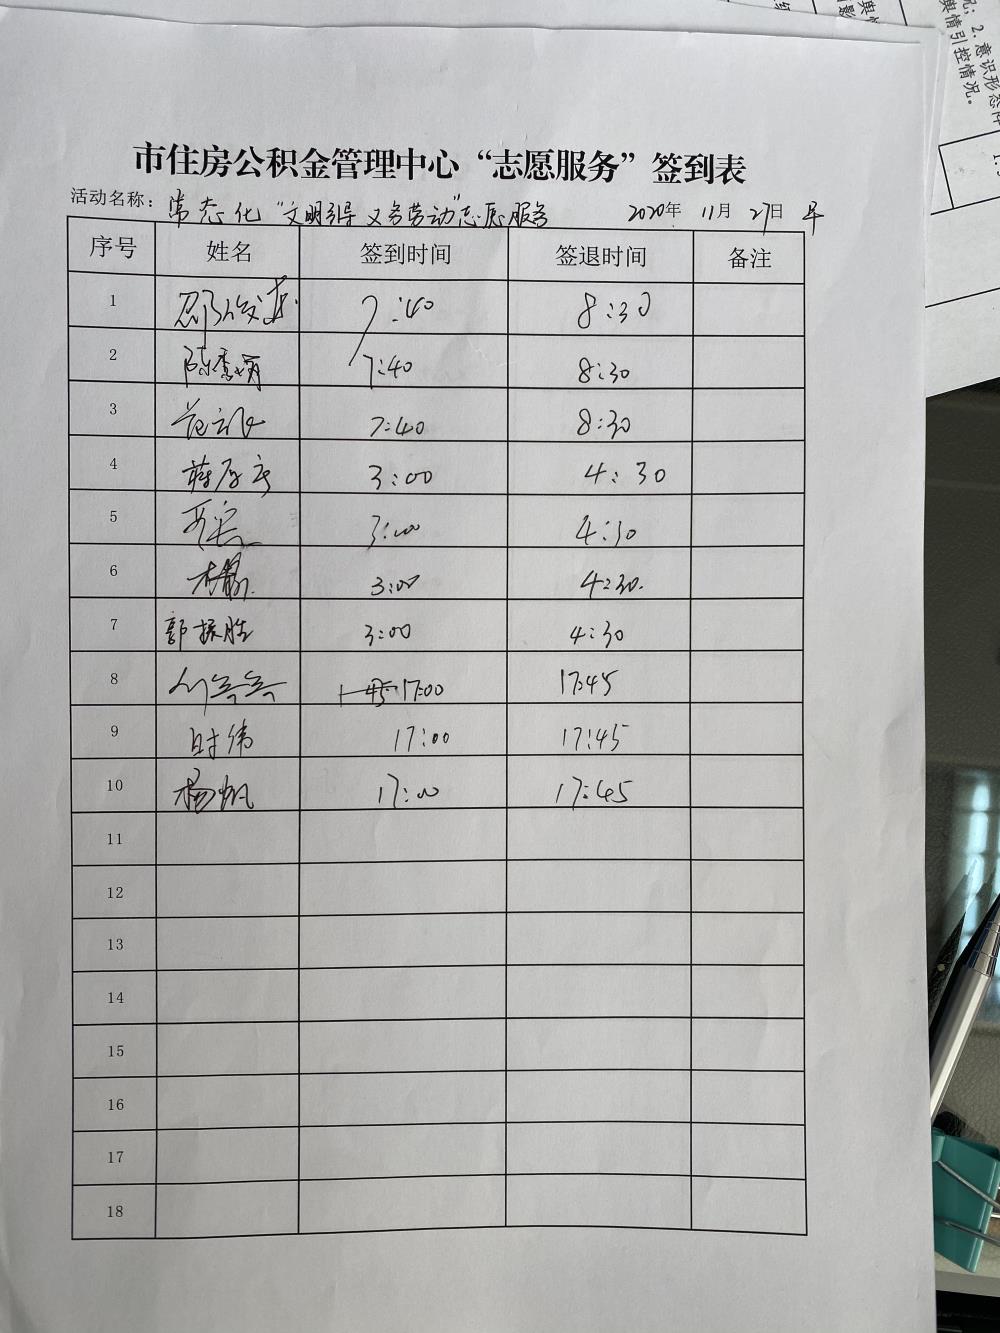 市住房公积金管理中心“志愿服务”签到表
活动名称：常态化“文明引导 义务劳动”志愿服务 2020年 11月 27日 早
序号 姓名 签到时间 签退时间 备注
1 7:40 8:30
2 陈秀娟 7:40 8:30
3 7:40 8:30
4 3:00 4:30
5 3:00 4:30
6 3:00 4:30.
7 郭振胜 3:00 4:30
8 17:00 17:45
9 时伟 17:00 17:45
10 杨帆 17:00 17:45
11
12
13
14
15
16
17
18